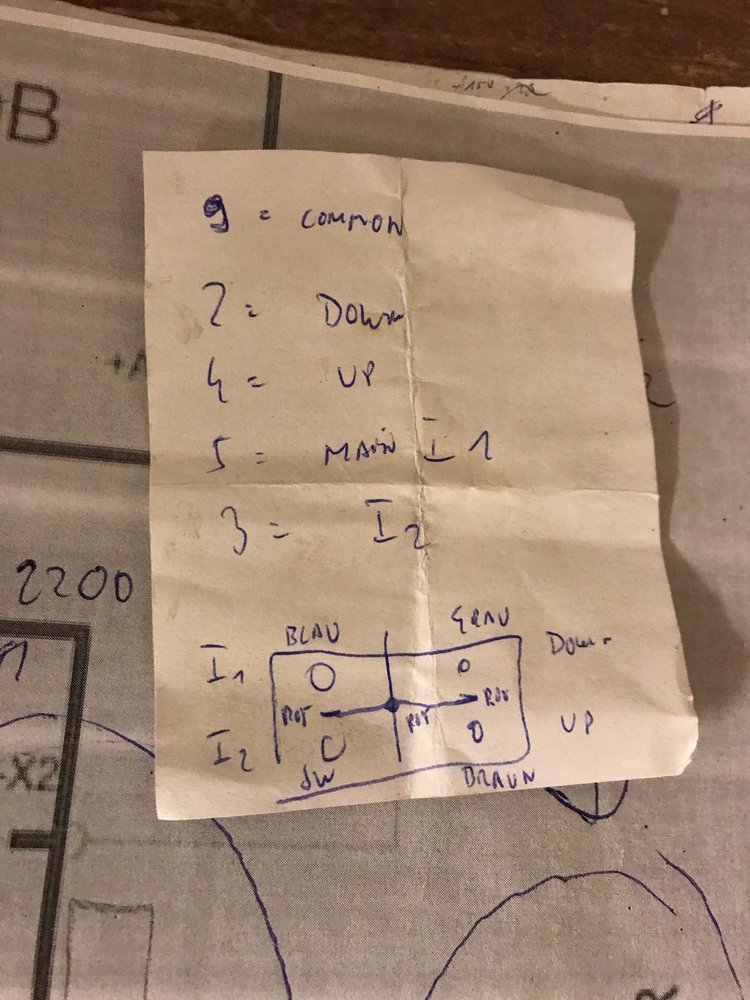 ØB
9 = COMMON
2 = DOWN
4 = UP
5 = MAIN I1
3 = I2
2200
BLAU GRAU DOWN
I1
ROT ROT ROT
I2 UP
SW BRAUN
-X2